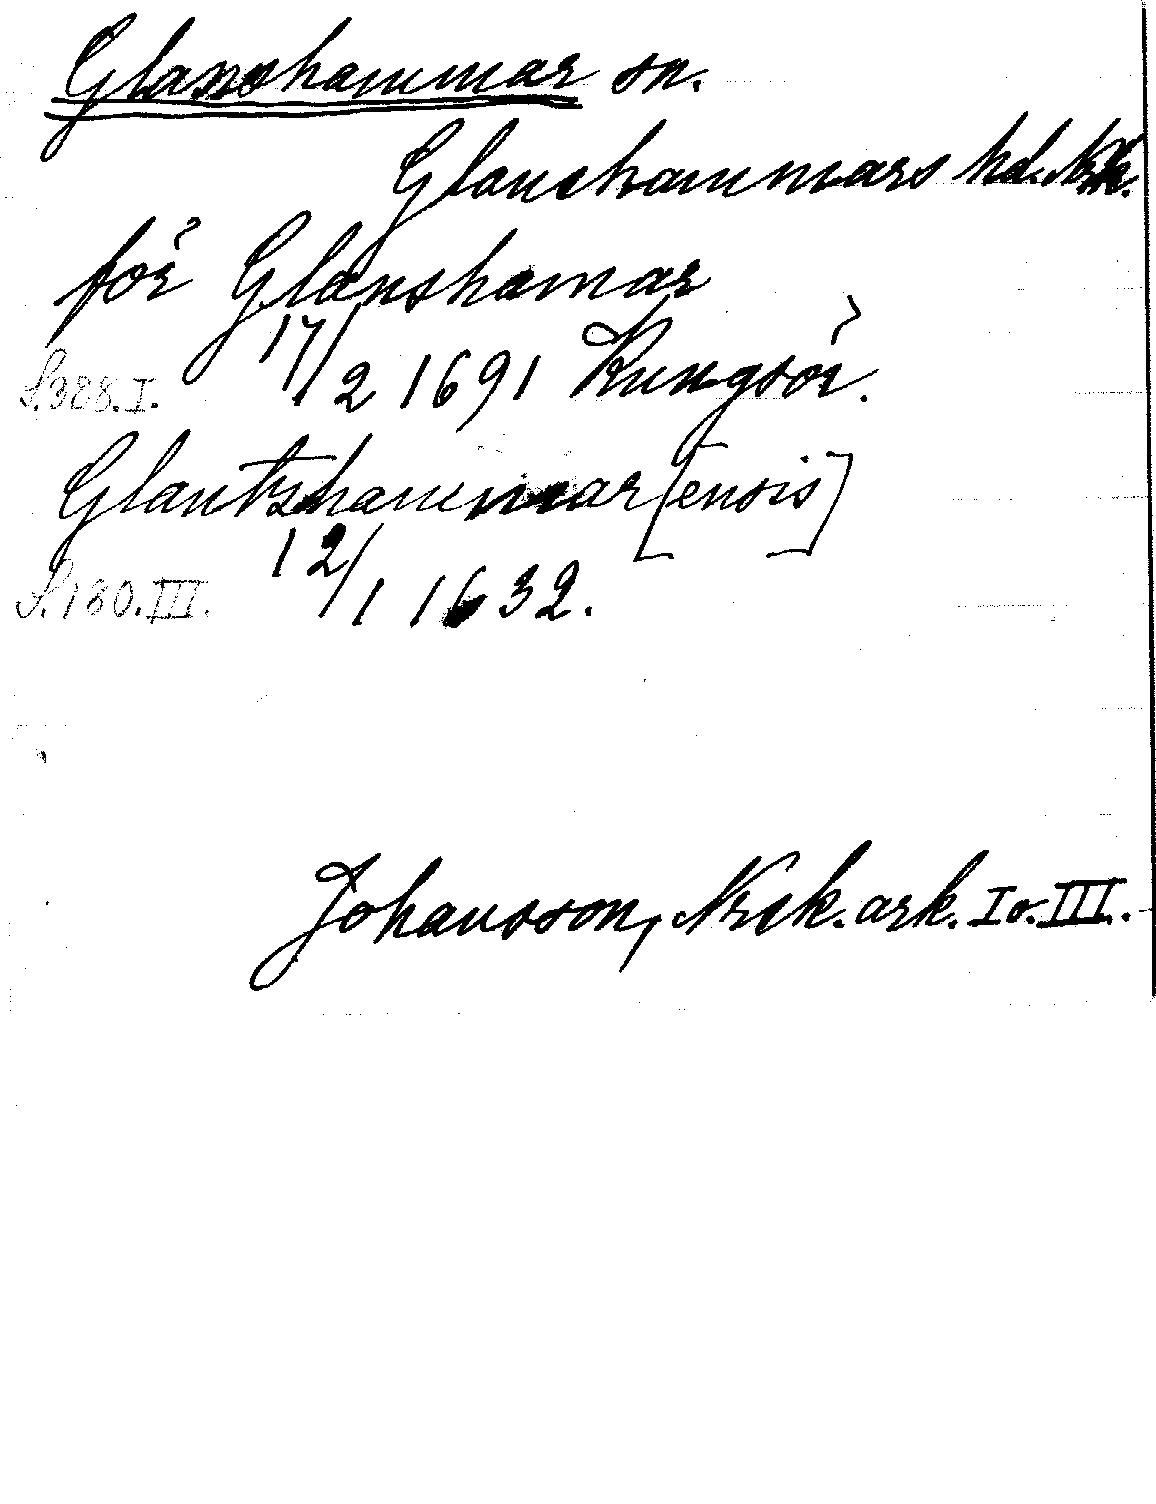 Glanshammar sn.
Glanshammars hd. Nrk.
för Glanshamar
S.388.I. 17/2 1691 Kungsör.
Glantzhammar[ensis]
S.180.III. 12/1 1632.
Johansson, Nrik. ark. I o. III.